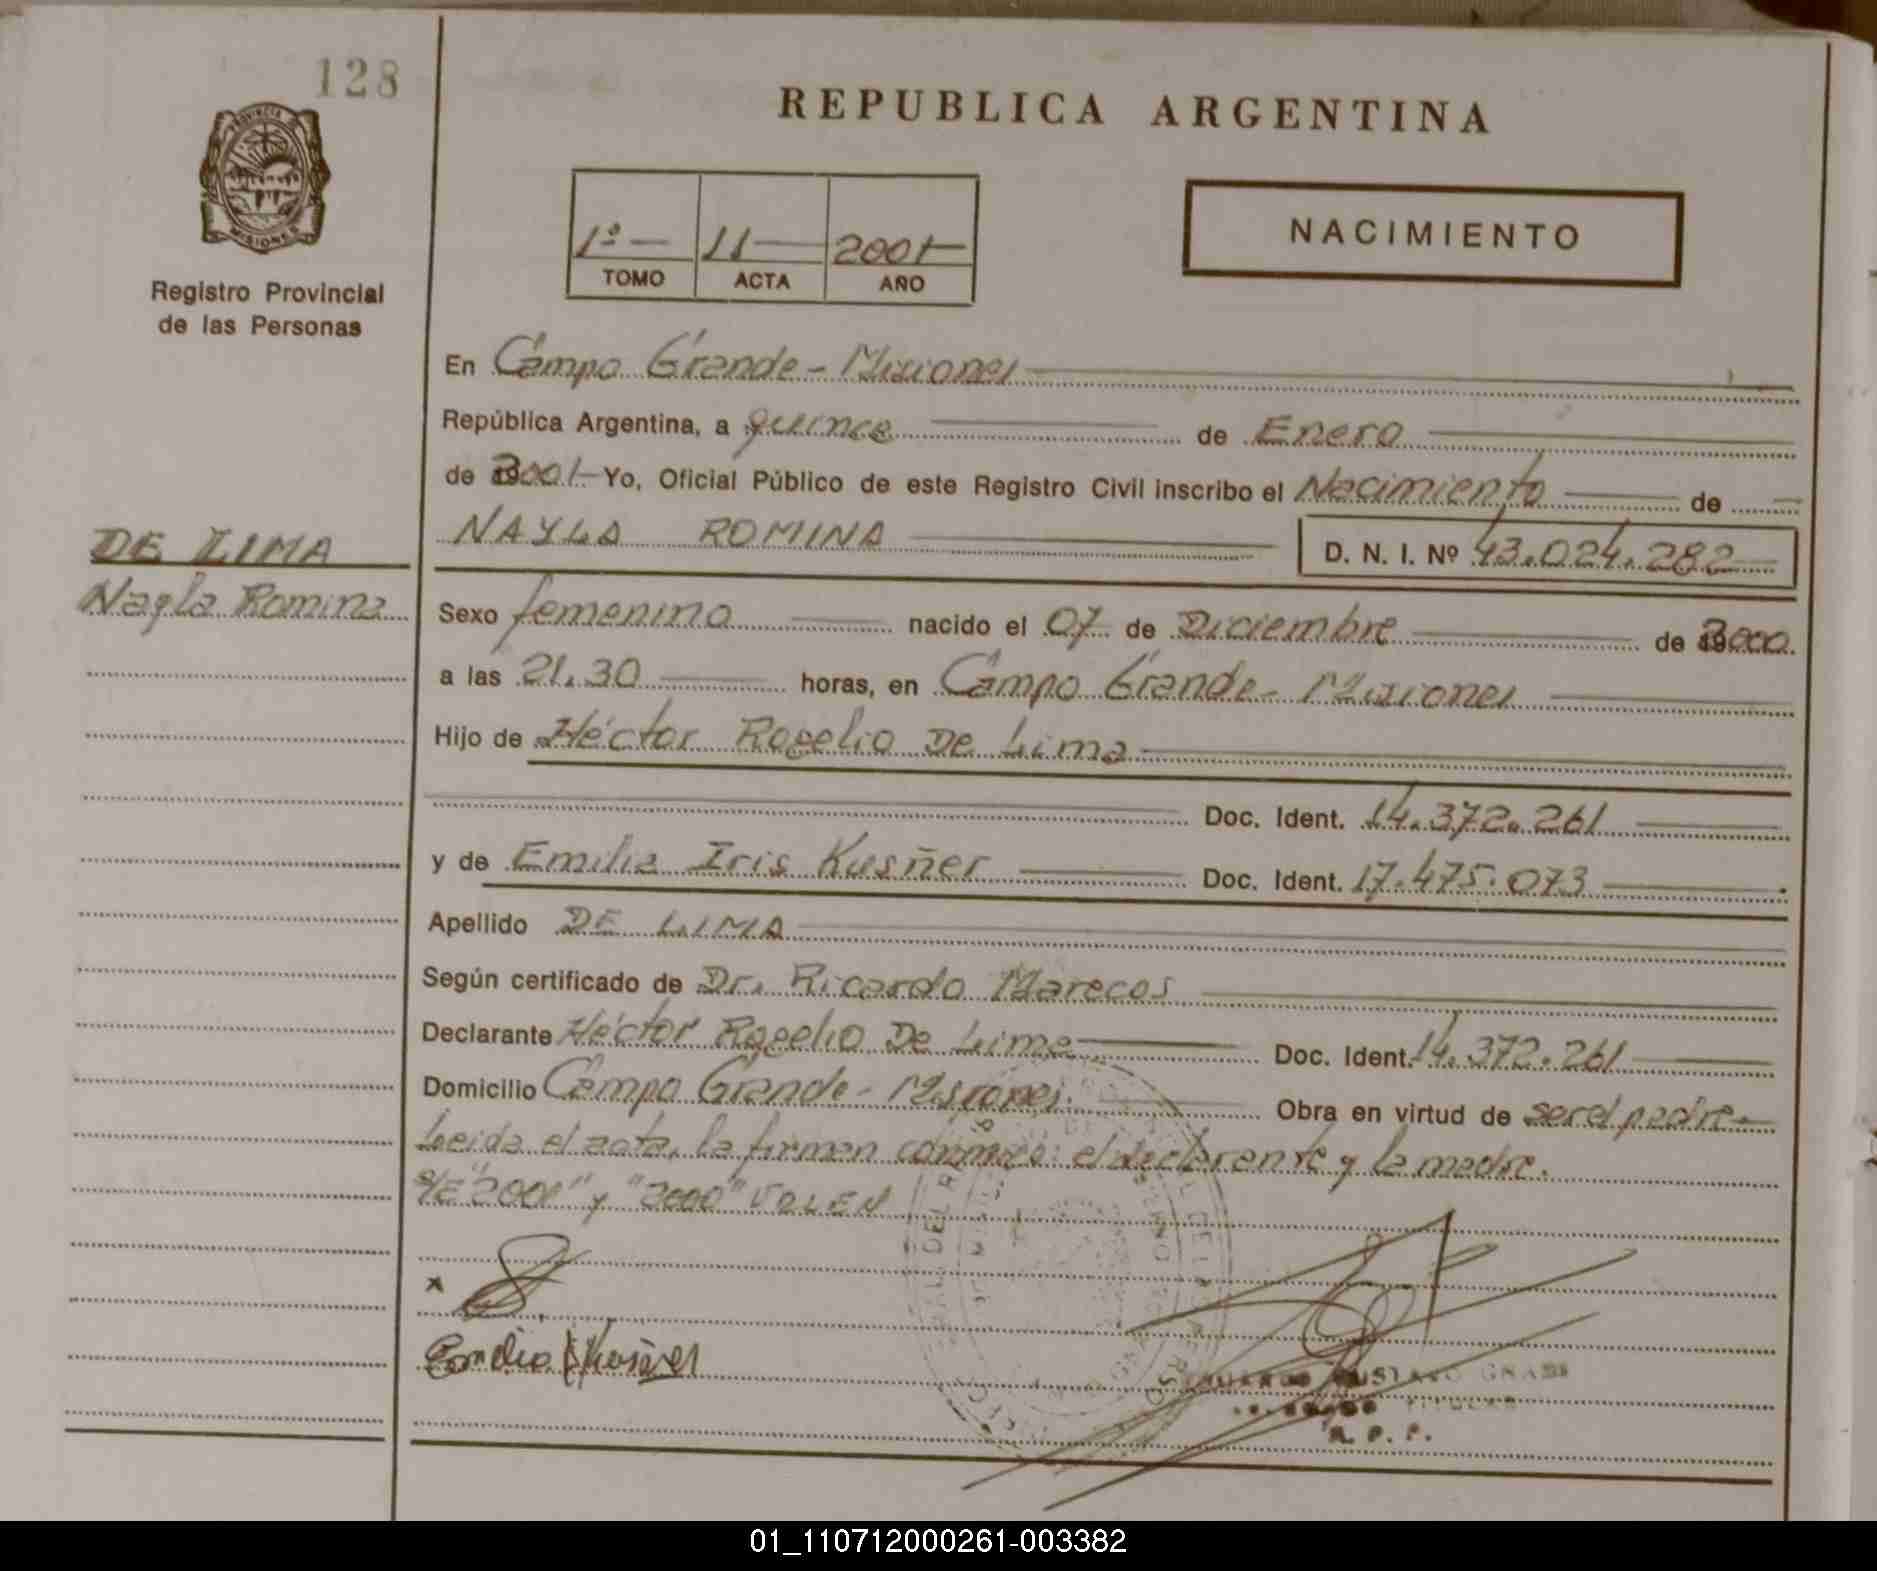 128
PROVINCIA
MISIONES
Registro Provincial
de las Personas
DE LIMA
Nayla Romina
REPUBLICA ARGENTINA
1º 11 2001
TOMO ACTA AÑO
NACIMIENTO
En Campo Grande - Misiones
República Argentina, a quince de Enero
de 2001 Yo, Oficial Público de este Registro Civil inscribo el Nacimiento de
NAYLA ROMINA D. N. I. Nº 43.024.282
Sexo femenino nacido el 07 de Diciembre de 2000
a las 21.30 horas, en Campo Grande - Misiones
Hijo de Héctor Rogelio De Lima
Doc. Ident. 14.372.261
y de Emilia Iris Kusñer Doc. Ident. 17.475.073
Apellido DE LIMA
Según certificado de Dr. Ricardo Marecos
Declarante Héctor Rogelio De Lima Doc. Ident. 14.372.261
Domicilio Campo Grande - Misiones. Obra en virtud de ser el padre
Leida el acta, la firman conmigo: el declarante y la madre.
S/E "2001" y "2000" VALEN
R. P. P.
01_110712000261-003382